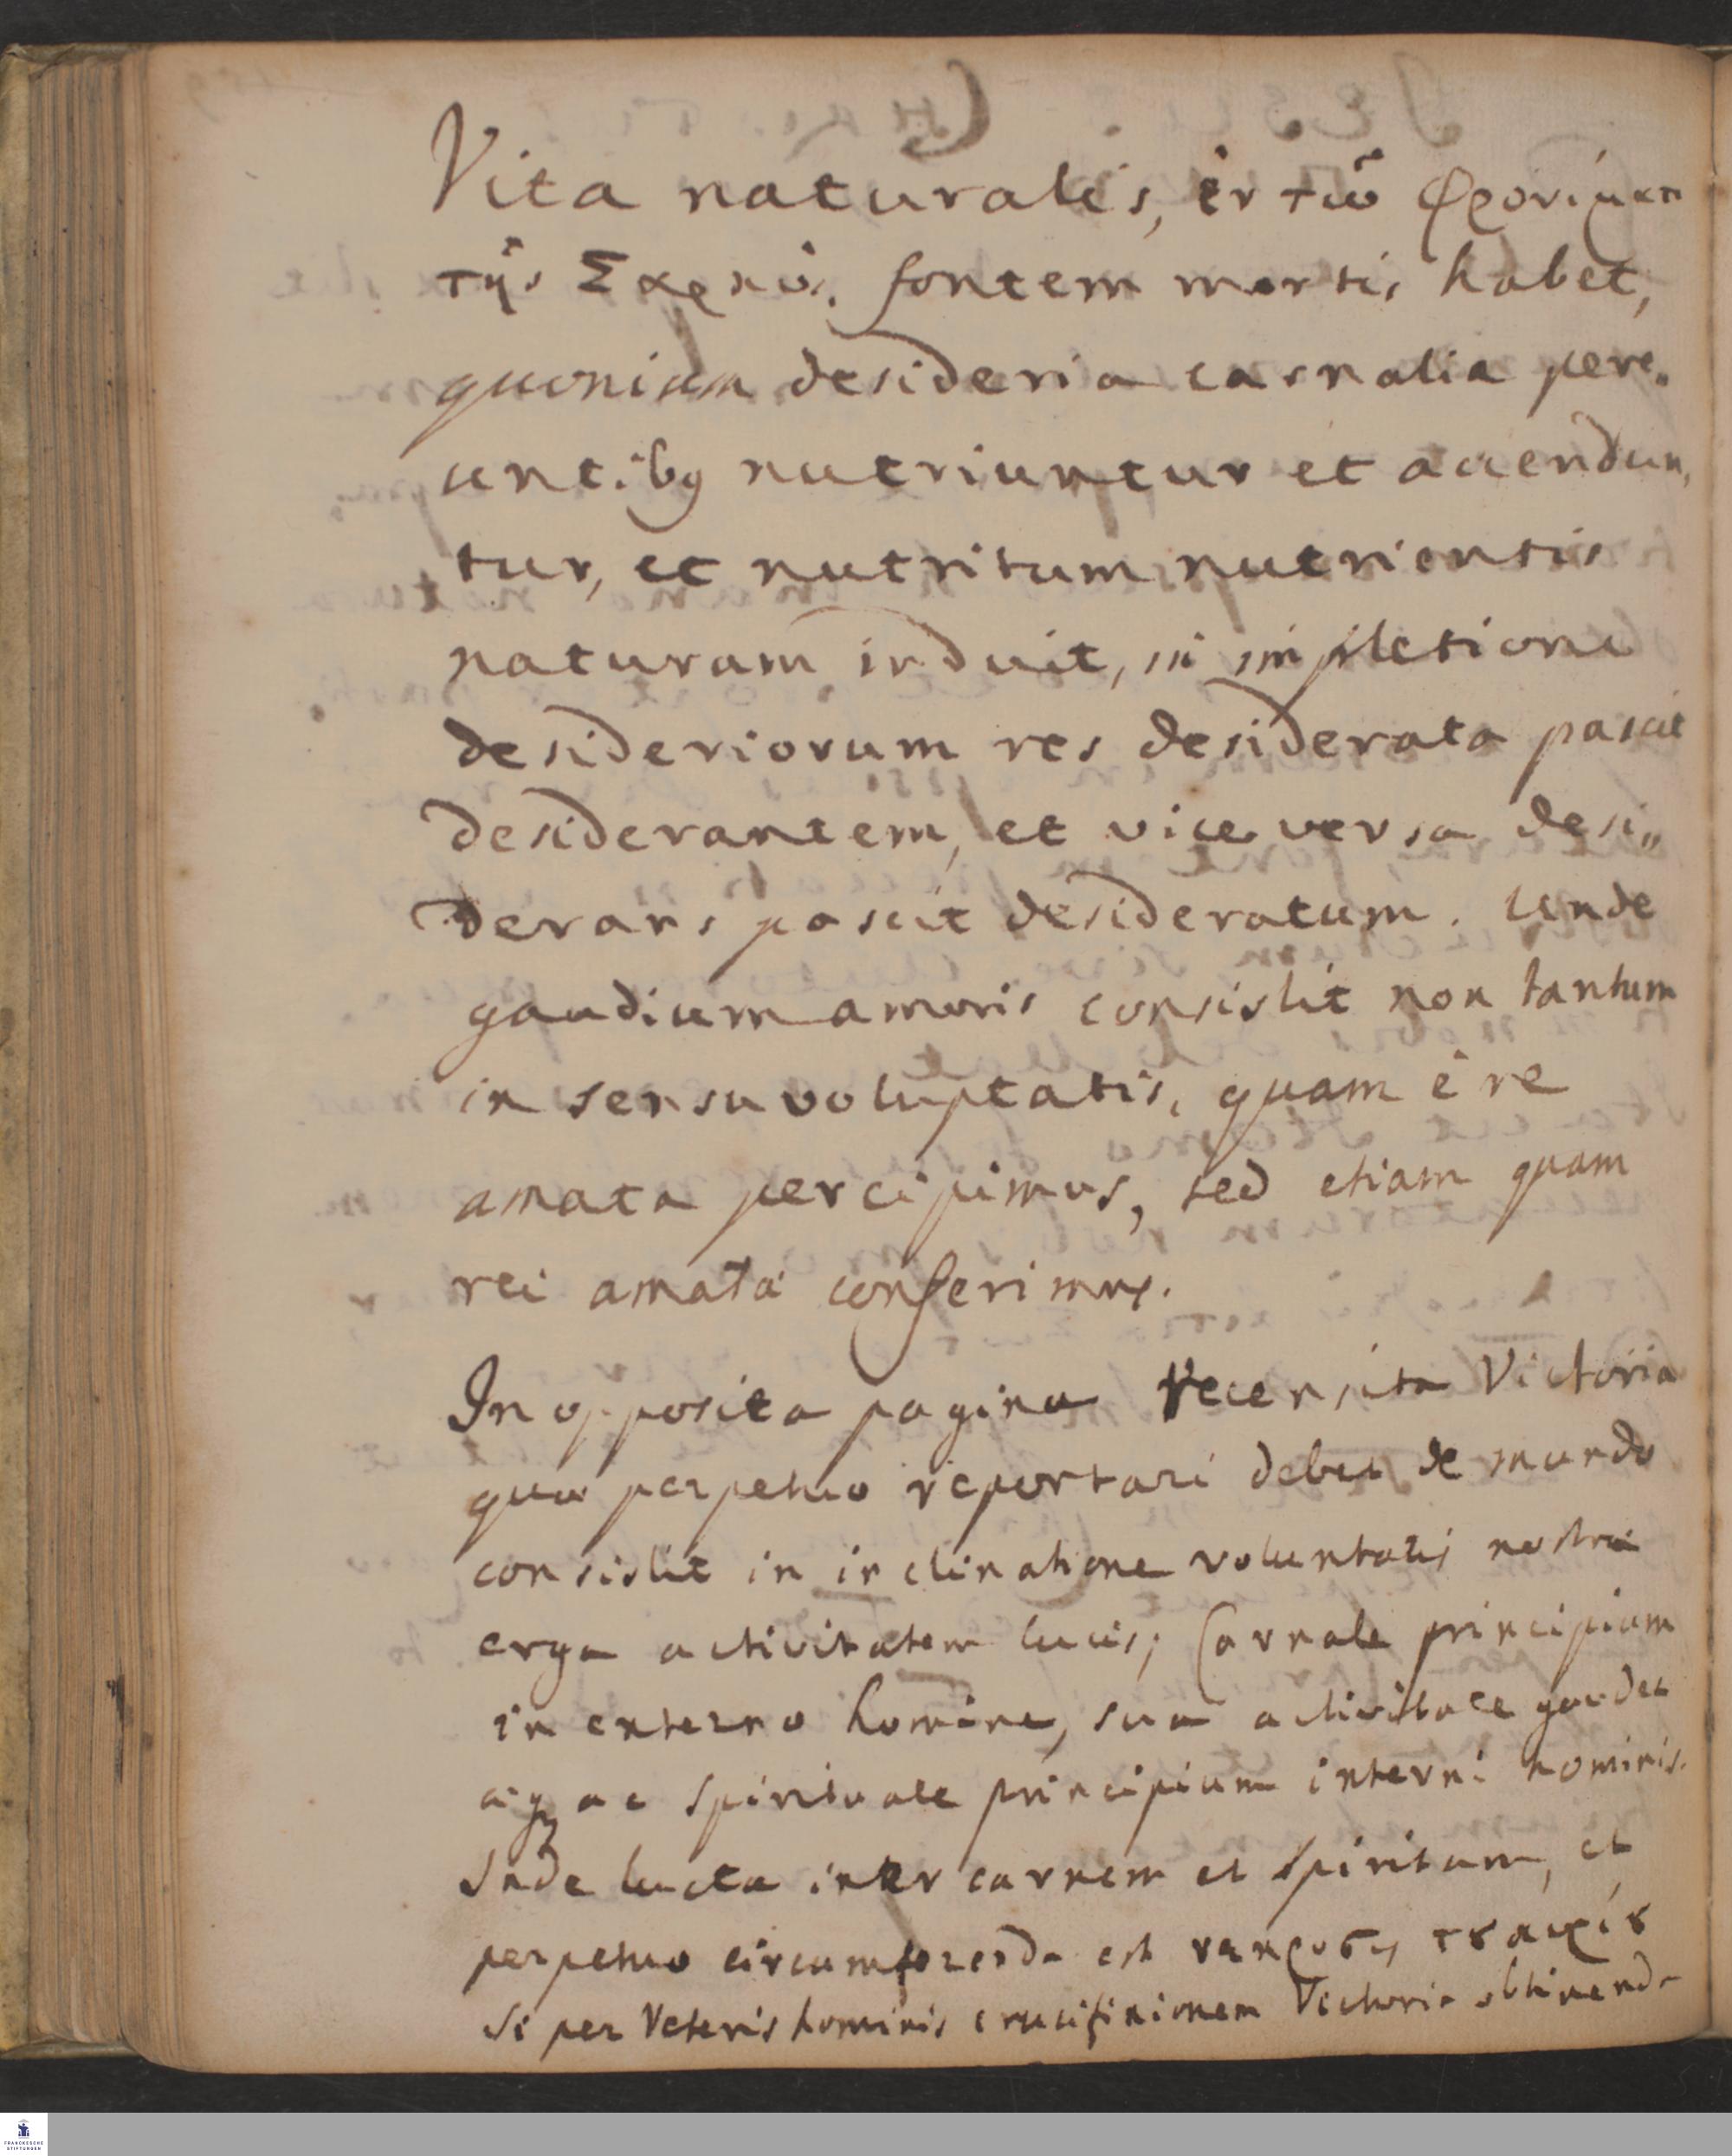 Vita naturalis, ἐν τῶ φρονήματι
τῆς Σαρκὸς, fontem mortis habet,
quoniam desideria carnalia pere„
untibꝰ nutriuntur et accendun„
tur, et nutritum nutrientis
naturam induit, in impletione
desideriorum res desiderata pascit
desiderantem, et vice versa desi„
derans pascit desideratum. Unde
gaudium amoris consistit non tantum
in sensu voluptatis, quam è re
amata percipimus, sed etiam quam
rei amatæ conferimus.
In opposita pagina recensita Victoria
quæ perpetuo reportari debet de mundo
consistit in inclinatione voluntatis nostræ
erga activitatem lucis; Carnale principium
in externo homine, sua activitate gaudet
æqꝫ ac spirituale principium interni hominis.
Inde lucta inter carnem et spiritum, et
perpetuo circumferenda est νεκρωσις τȣ κυρίȣ
si per Veteris hominis crucifixionem Victoria obtinenda
FRANCKESCHE
STIFTUNGEN